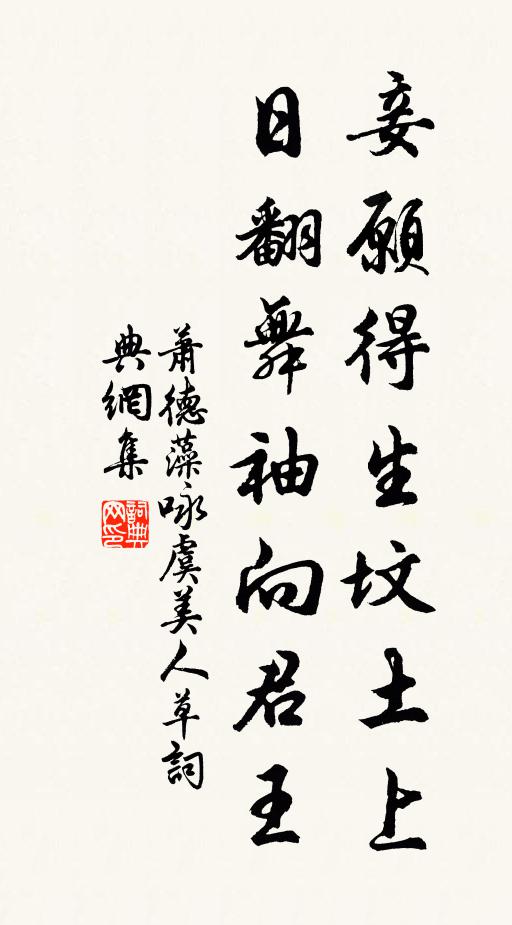 妾願得生坟土上
日翻舞袖向君王
萧德藻咏虞美人草詞
典網集
詞典网印